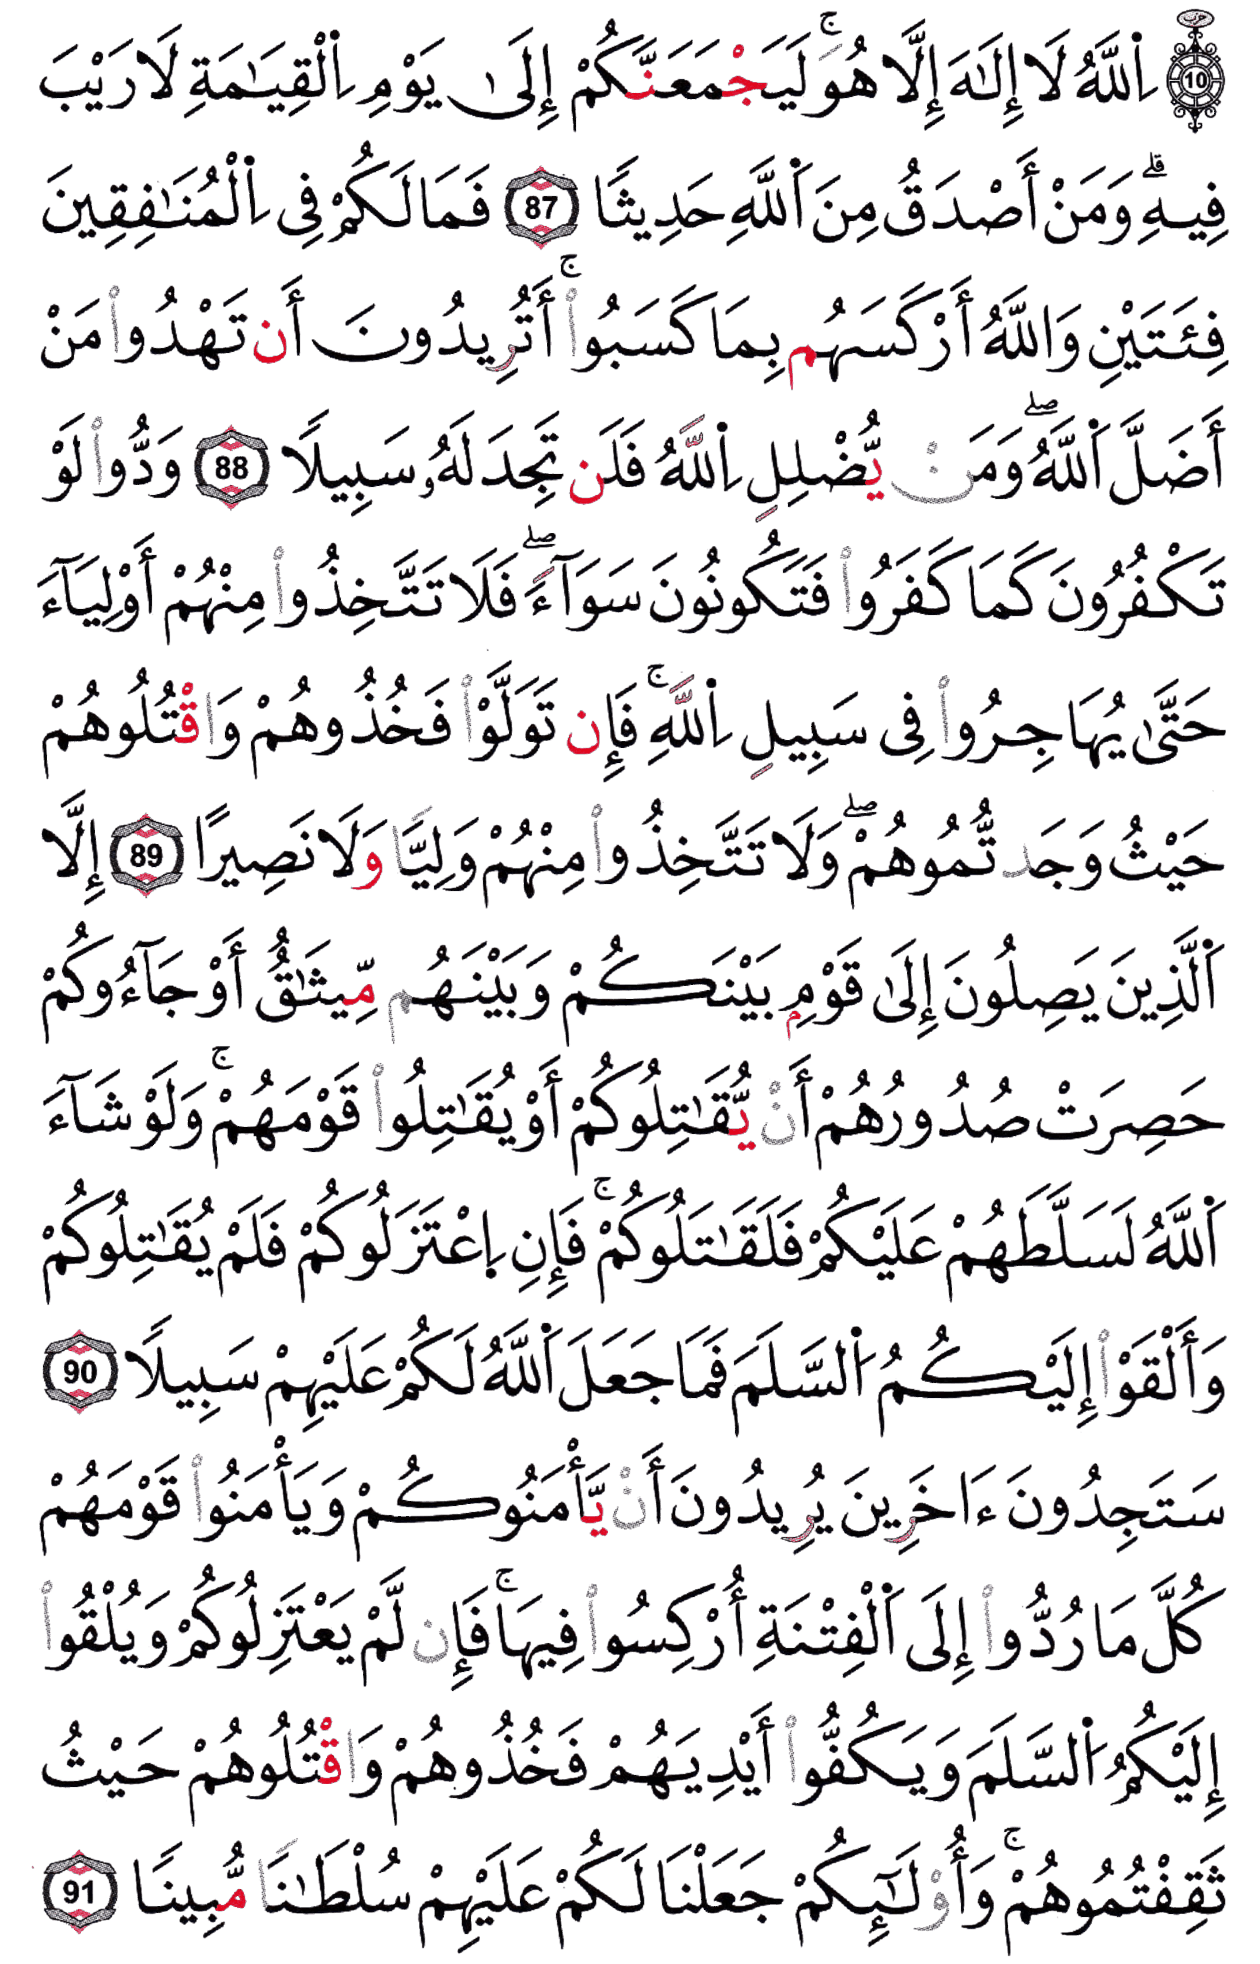 حزب 10 اِ۬للَّهُ لَا إِلَٰهَ إِلَّا هُوَۚ لَيَجْمَعَنَّكُمْ إِلَىٰ يَوْمِ اِ۬لْقِيَٰمَةِ لَا رَيْبَ
فِيهِۗ وَمَنْ أَصْدَقُ مِنَ اَ۬للَّهِ حَدِيثًا 87 فَمَا لَكُمْ فِي اِ۬لْمُنَٰفِقِينَ
فِئَتَيْنِ وَاللَّهُ أَرْكَسَهُم بِمَا كَسَبُواْۚ أَتُرِيدُونَ أَن تَهْدُواْ مَنْ
أَضَلَّ اَ۬للَّهُۖ وَمَنْ يُّضْلِلِ اِ۬للَّهُ فَلَن تَجِدَ لَهُۥ سَبِيلًا 88 وَدُّواْ لَوْ
تَكْفُرُونَ كَمَا كَفَرُواْ فَتَكُونُونَ سَوَآءًۖ فَلَا تَتَّخِذُواْ مِنْهُمْ أَوْلِيَآءَ
حَتَّىٰ يُهَاجِرُواْ فِي سَبِيلِ اِ۬للَّهِۚ فَإِن تَوَلَّوْاْ فَخُذُوهُمْ وَاقْتُلُوهُمْ
حَيْثُ وَجَدتُّمُوهُمْۖ وَلَا تَتَّخِذُواْ مِنْهُمْ وَلِيًّا وَلَا نَصِيرًا 89 إِلَّا
اَ۬لَّذِينَ يَصِلُونَ إِلَىٰ قَوْمِۢ بَيْنَكُمْ وَبَيْنَهُم مِّيثَٰقٌ أَوْ جَآءُوكُمْ
حَصِرَتْ صُدُورُهُمْ أَنْ يُّقَٰتِلُوكُمْ أَوْ يُقَٰتِلُواْ قَوْمَهُمْۚ وَلَوْ شَآءَ
اَ۬للَّهُ لَسَلَّطَهُمْ عَلَيْكُمْ فَلَقَٰتَلُوكُمْۚ فَإِنِ اِ۪عْتَزَلُوكُمْ فَلَمْ يُقَٰتِلُوكُمْ
وَأَلْقَوْاْ إِلَيْكُمُ اُ۬لسَّلَمَ فَمَا جَعَلَ اَ۬للَّهُ لَكُمْ عَلَيْهِمْ سَبِيلًا 90
سَتَجِدُونَ ءَاخَرِينَ يُرِيدُونَ أَنْ يَّأْمَنُوكُمْ وَيَأْمَنُواْ قَوْمَهُمْ
كُلَّ مَا رُدُّواْ إِلَى اَ۬لْفِتْنَةِ أُرْكِسُواْ فِيهَاۚ فَإِن لَّمْ يَعْتَزِلُوكُمْ وَيُلْقُواْ
إِلَيْكُمُ اُ۬لسَّلَمَ وَيَكُفُّواْ أَيْدِيَهُمْ فَخُذُوهُمْ وَاقْتُلُوهُمْ حَيْثُ
ثَقِفْتُمُوهُمْۚ وَأُوْلَٰٓئِكُمْ جَعَلْنَا لَكُمْ عَلَيْهِمْ سُلْطَٰنًا مُّبِينًا 91